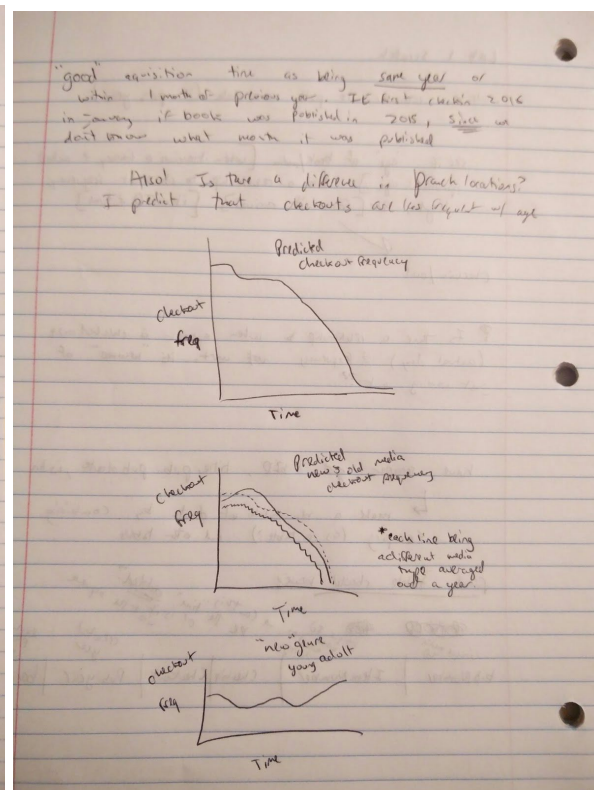 "good" aquisition time as being same year or
within 1 month of previous year. IE first checkin 2016
in January if book was published in 2015, since we
don't know what month it was published
Also! Is there a difference in branch locations?
I predict that checkouts are less frequent w/ age
Predicted
checkout frequency
checkout
freq
Time
Predicted
new & old media
checkout frequency
checkout
freq
*each line being
a different media
type averaged
out a year.
Time
"new" genre
young adult
checkout
freq
Time